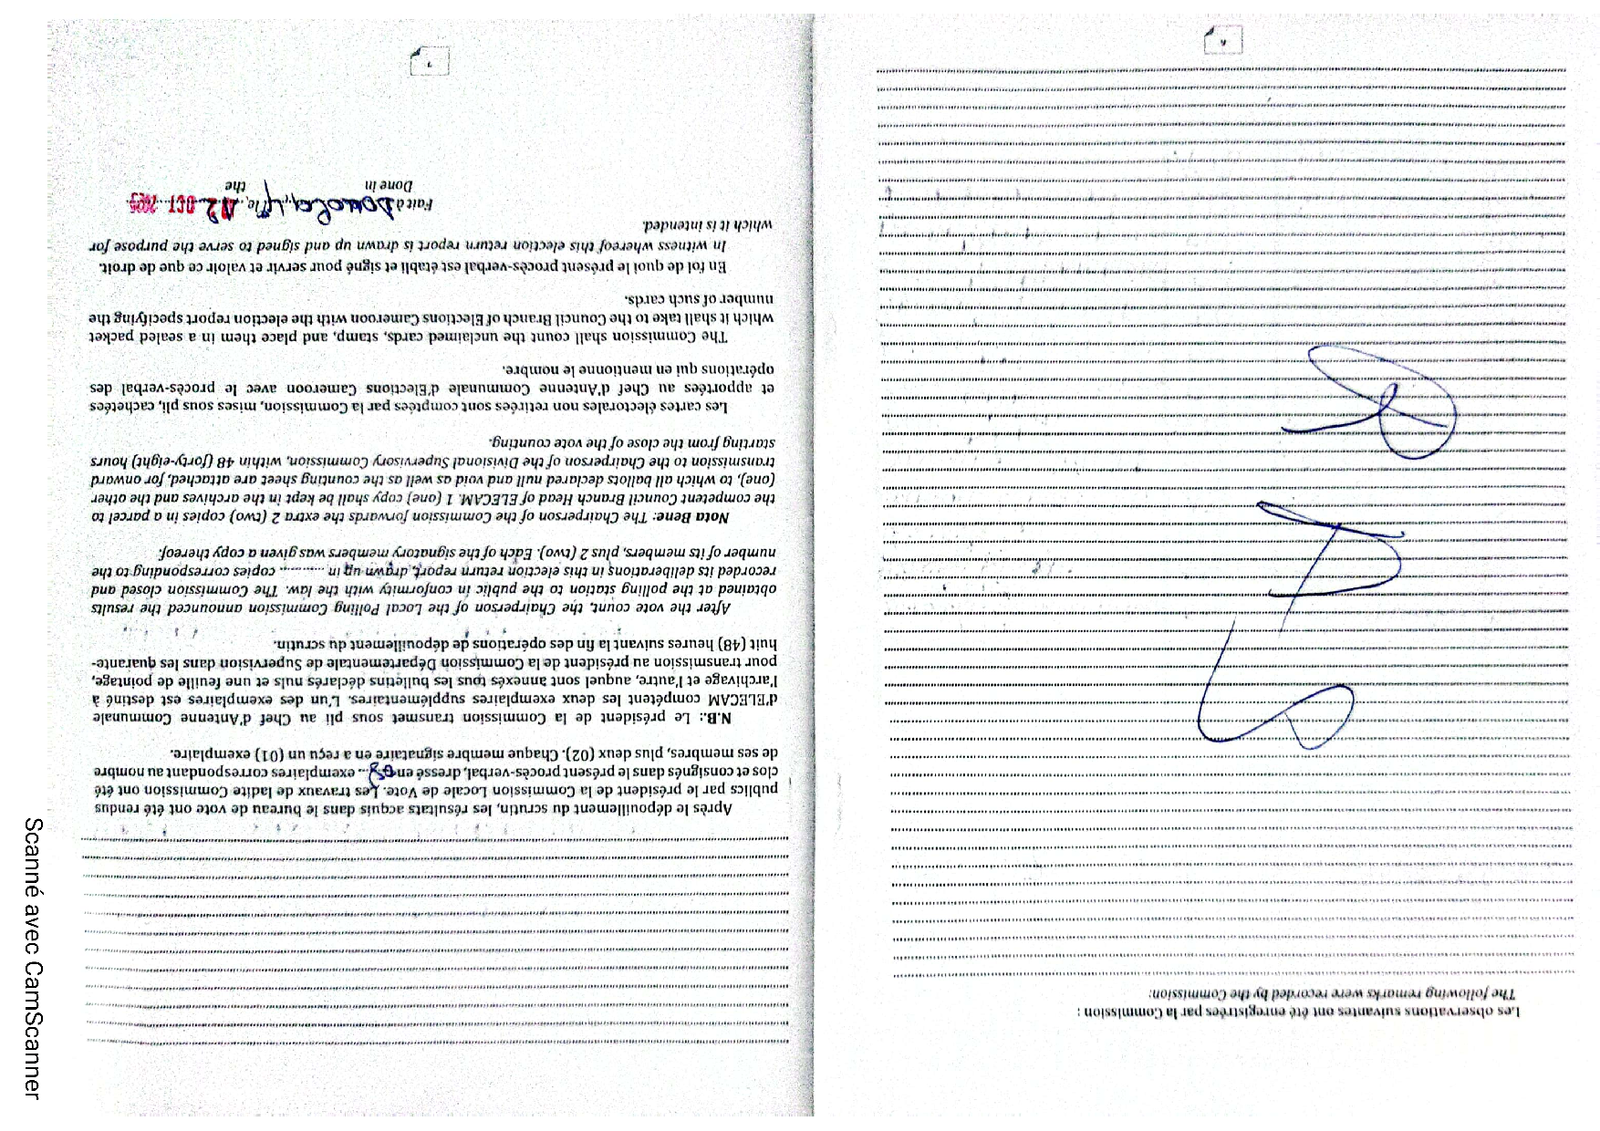 Les observations suivantes ont été enregistrées par la Commission :
The following remarks were recorded by the Commission:
Après le dépouillement du scrutin, les résultats acquis dans le bureau de vote ont été rendus
publics par le président de la Commission Locale de Vote. Les travaux de ladite Commission ont été
clos et consignés dans le présent procès-verbal, dressé en 08 exemplaires correspondant au nombre
de ses membres, plus deux (02). Chaque membre signataire en a reçu un (01) exemplaire.
N.B.: Le président de la Commission transmet sous pli au Chef d'Antenne Communale
d'ELECAM compétent les deux exemplaires supplémentaires. L'un des exemplaires est destiné à
l'archivage et l'autre, auquel sont annexés tous les bulletins déclarés nuls et une feuille de pointage,
pour transmission au président de la Commission Départementale de Supervision dans les quarante-
huit (48) heures suivant la fin des opérations de dépouillement du scrutin.
After the vote count, the Chairperson of the Local Polling Commission announced the results
obtained at the polling station to the public in conformity with the law. The Commission closed and
recorded its deliberations in this election return report, drawn up in .......... copies corresponding to the
number of its members, plus 2 (two). Each of the signatory members was given a copy thereof.
Nota Bene: The Chairperson of the Commission forwards the extra 2 (two) copies in a parcel to
the competent Council Branch Head of ELECAM. 1 (one) copy shall be kept in the archives and the other
(one), to which all ballots declared null and void as well as the counting sheet are attached, for onward
transmission to the Chairperson of the Divisional Supervisory Commission, within 48 (forty-eight) hours
starting from the close of the vote counting.
Les cartes électorales non retirées sont comptées par la Commission, mises sous pli, cachetées
et apportées au Chef d'Antenne Communale d'Elections Cameroon avec le procès-verbal des
opérations qui en mentionne le nombre.
The Commission shall count the unclaimed cards, stamp, and place them in a sealed packet
which it shall take to the Council Branch of Elections Cameroon with the election report specifying the
number of such cards.
En foi de quoi le présent procès-verbal est établi et signé pour servir et valoir ce que de droit.
In witness whereof this election return report is drawn up and signed to serve the purpose for
which it is intended.
Fait à Douala 4, le, 12 OCT 2025
Done in the
Scanné avec CamScanner